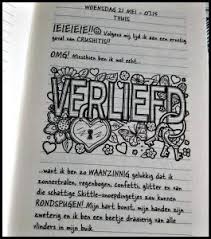 WOENSDAG 21 MEI - 07.15
THUIS
IEIEIEIE!! Volgens mij lijd ik aan een ernstig
geval van CRUSHITIS!!
OMG! Misschien ben ik wel echt...
VERLIEFD
...want ik ben zo WAANZINNIG gelukkig dat ik
zonnestralen, regenbogen, confetti, glitter en van
die schattige Skittle-snoepdingetjes zou kunnen
RONDSPUGEN! Mijn hart bonst, mijn handen zijn
zweterig en ik ben een beetje draaierig van alle
vlinders in mijn buik.